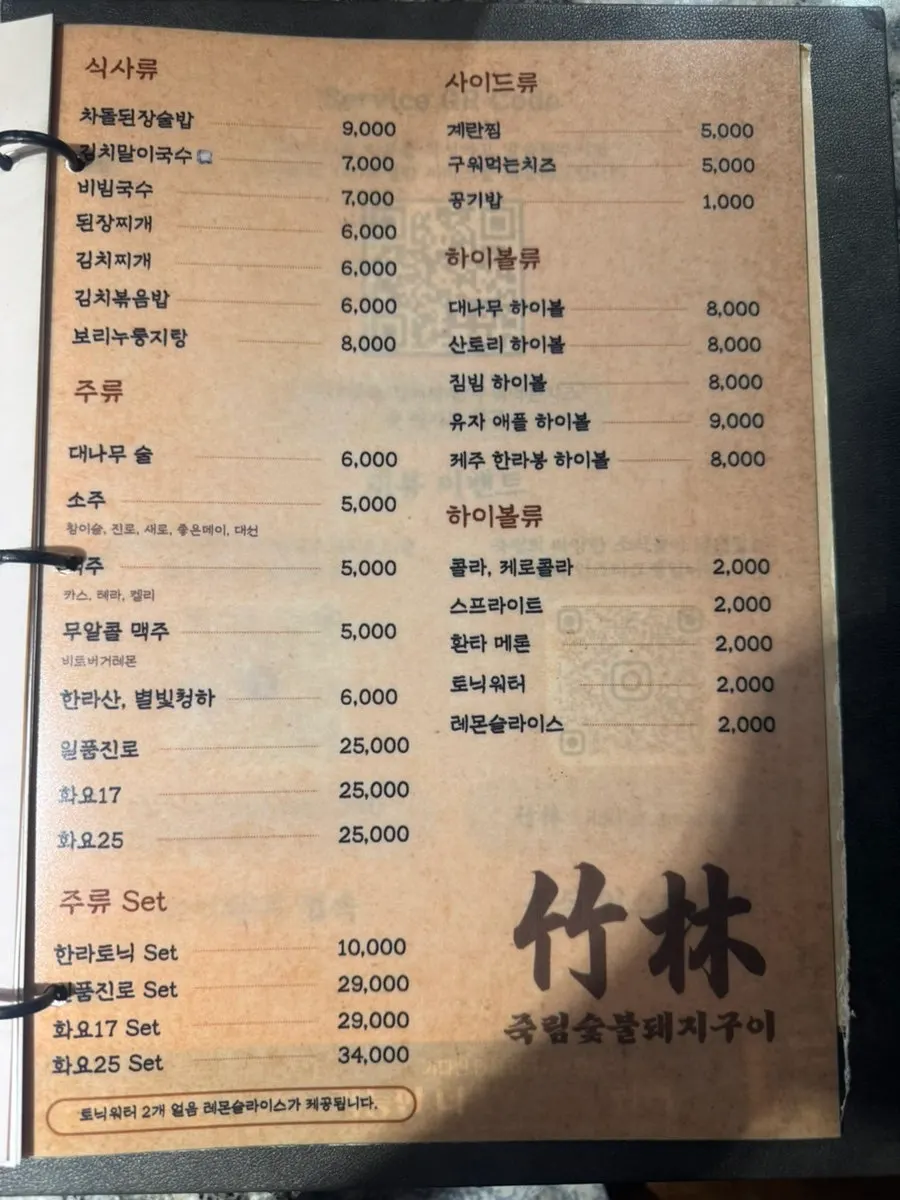 식사류
차돌된장술밥 9,000
김치말이국수 7,000
비빔국수 7,000
된장찌개 6,000
김치찌개 6,000
김치볶음밥 6,000
보리누룽지탕 8,000
주류
대나무 술 6,000
소주 5,000
참이슬, 진로, 새로, 좋은데이, 대선
맥주 5,000
카스, 테라, 켈리
무알콜 맥주 5,000
비트버거레몬
한라산, 별빛청하 6,000
일품진로 25,000
화요17 25,000
화요25 25,000
주류 Set
한라토닉 Set 10,000
일품진로 Set 29,000
화요17 Set 29,000
화요25 Set 34,000
토닉워터 2개 얼음 레몬슬라이스가 제공됩니다.
사이드류
계란찜 5,000
구워먹는치즈 5,000
공기밥 1,000
하이볼류
대나무 하이볼 8,000
산토리 하이볼 8,000
짐빔 하이볼 8,000
유자 애플 하이볼 9,000
제주 한라봉 하이볼 8,000
하이볼류
콜라, 제로콜라 2,000
스프라이트 2,000
환타 메론 2,000
토닉워터 2,000
레몬슬라이스 2,000
竹林
죽림숯불돼지구이